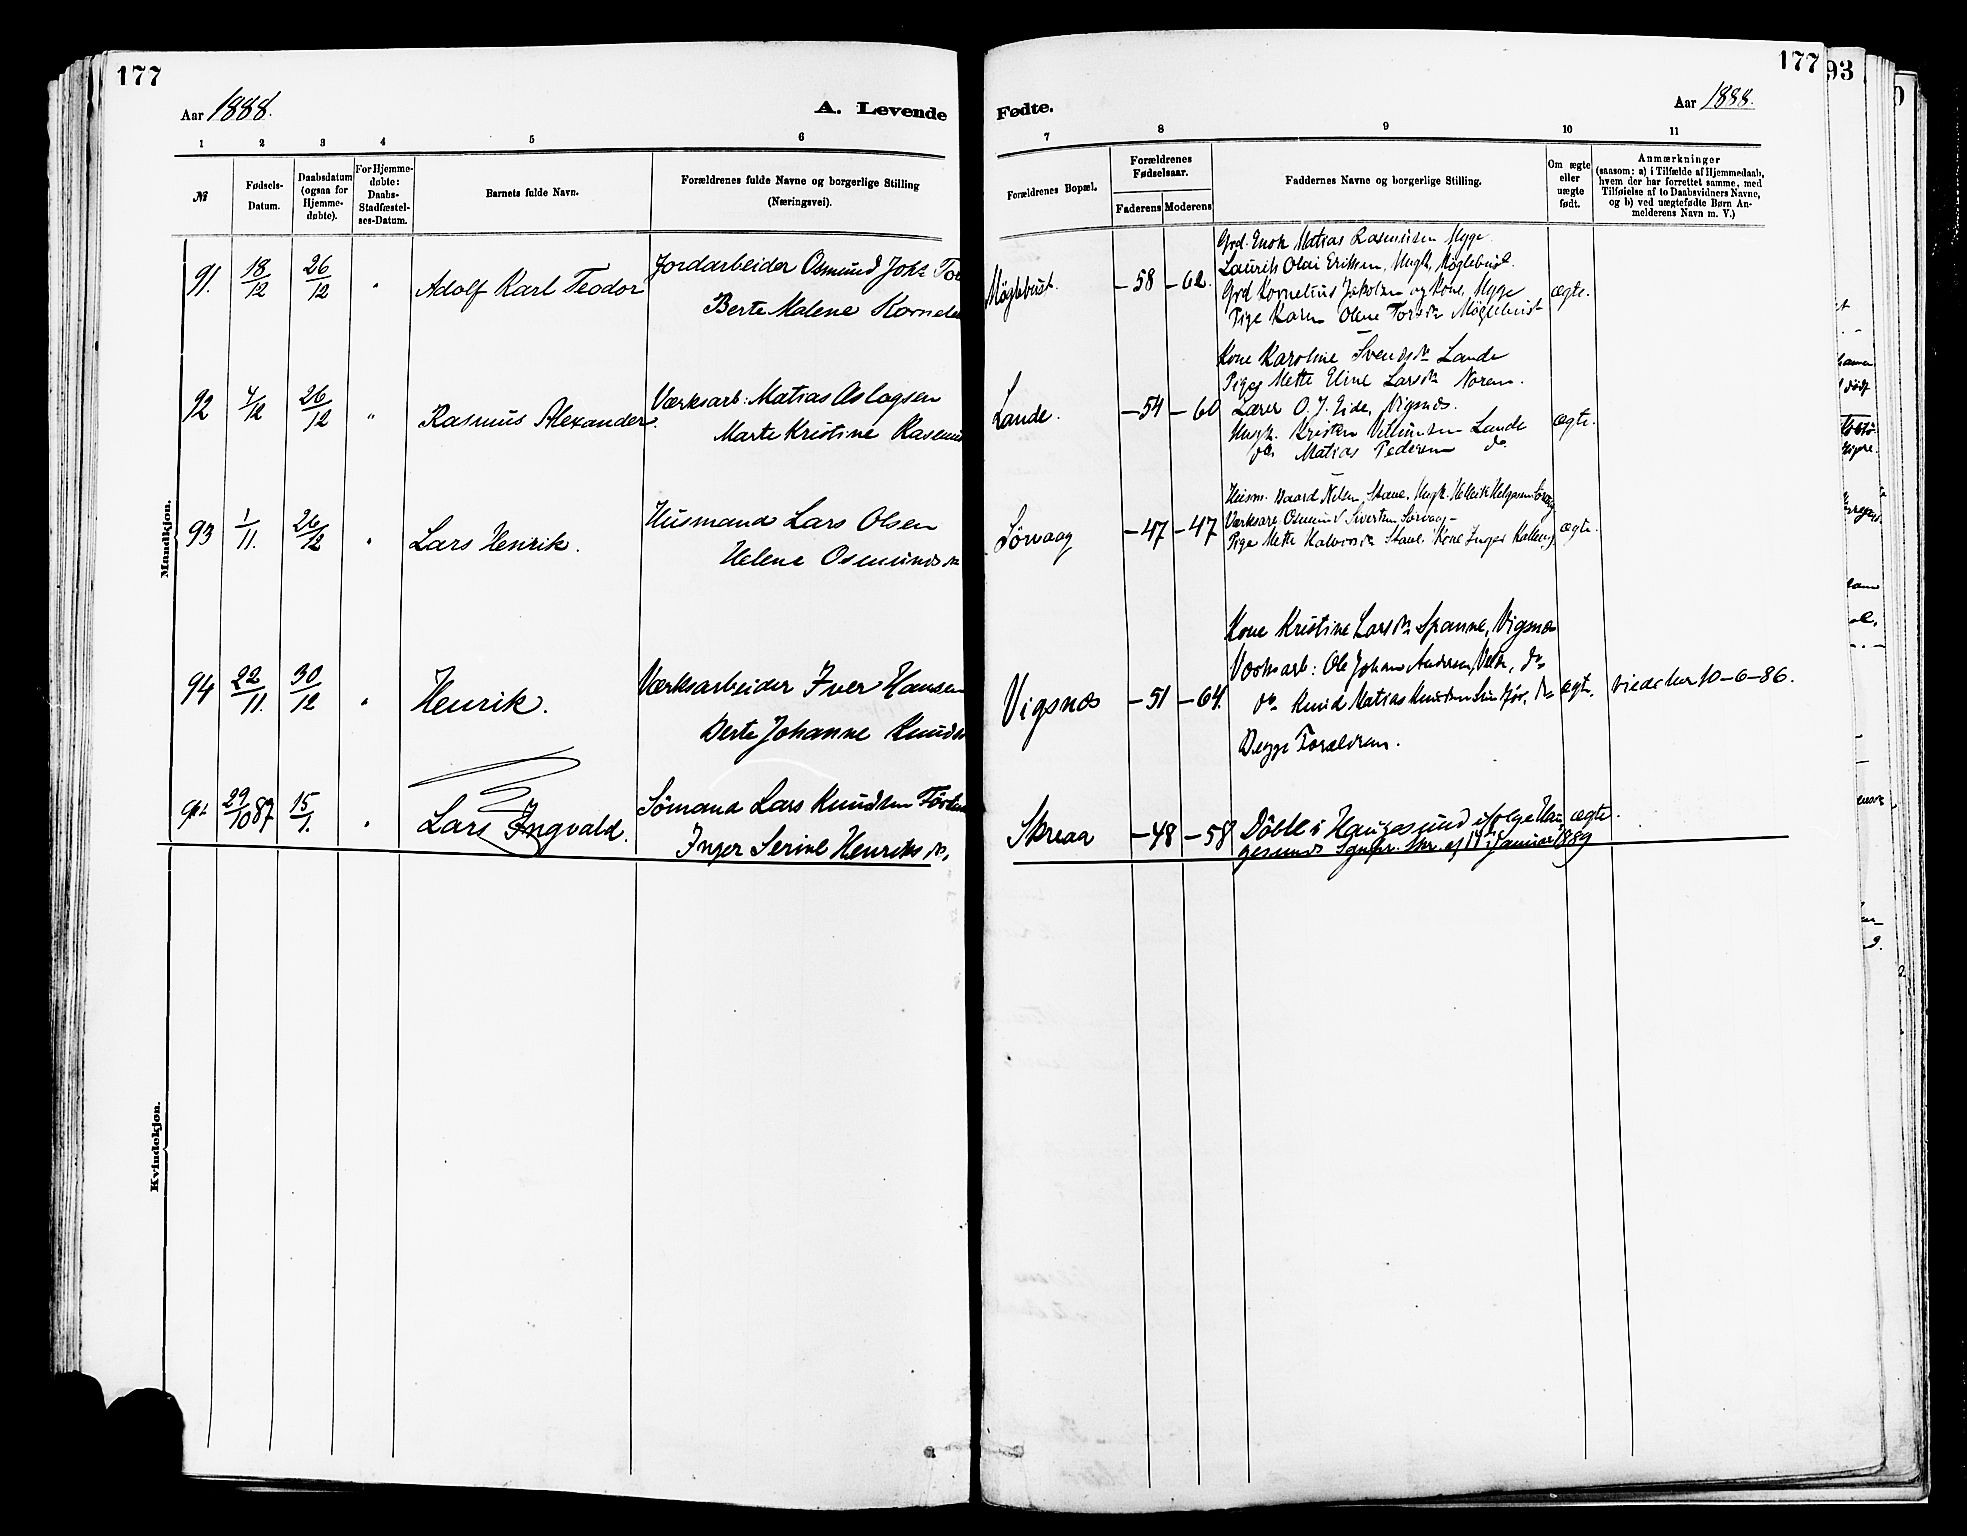 177
177
93
Aar 1888.
A. Levende
Fødte.
Aar 1888.
1 2 3 4 5 6
7 8 9 10 11
№
Fødsels-
Datum.
Daabsdatum
(ogsaa for
Hjemme-
døbte).
For Hjemme-
døbte:
Daabs-
Stadfæstel-
ses-Datum.
Barnets fulde Navn.
Forældrenes fulde Navne og borgerlige Stilling
(Næringsvei).
Forældrenes Bopæl.
Forældrenes
Fødselsaar.
Faderens
Moderens
Faddernes Navne og borgerlige Stilling.
Om ægte
eller
uægte
født.
Anmærkninger
(saasom: a) i Tilfælde af Hjemmedaab,
hvem der har forrettet samme, med
Tilføielse af to Daabsvidners Navne,
og b) ved uægtefødte Børn An-
melderens Navn m. V.)
Mandkjøn.
91. 18/12 26/12 " Adolf Karl Teodor
Jordarbeider Osmund Joh
Berte Malene
Møglebust. -58 -62.
Grd. Enok Matias Rasmussen Myge
Laurits Olai Eriksen, Ungk. Møglebust.
Grd Kornelius Jakobsen og Kone, Myge
Pige Karen Olene Møglebust
ægte.
92 4/12 26/12 " Rasmus Alexander.
Værksarb: Matias Aslagsen
Marte Kristine
Lande. -54 -60
Kone Karoline Svendsdr Lande
Pige Mette Eline Larsdr Norem.
Lærer O. J. Eide, Vigsnæs.
Ungk. Lande
do. Matias Pedersen do
ægte.
93 1/11. 26/12 " Lars Henrik.
Husmand Lars Olsen
Helene Osmundsdr
Sørvaag -47 -47
Husm. Baard Nilsen, Ungk. Helgesen
Osmund Sivertsen Sørvaag
Pige Mette Kone Inger
ægte.
94 22/11. 30/12 " Henrik.
Værksarbeider Iver Hansen
Berte Johanne
Vigsnæs -51 -64.
Kone Kristine Larsdr Spanne, Vigsnæs
Værksarb: Ole Johan Andersen, do
do Knud Matias Knudsen do
Begge Forældrene.
ægte.
viede her 10-6-86.
29/10 87 15/1. " Lars Ingvald.
Sømand Lars Knudsen
Inger Serine Henriksdr,
Skreaa -48 -58
Døbt i Haugesund ifølge Hau-
gesunds Sgnpr. Skr. af 14 Januar 1889
ægte.
Kvindekjøn.